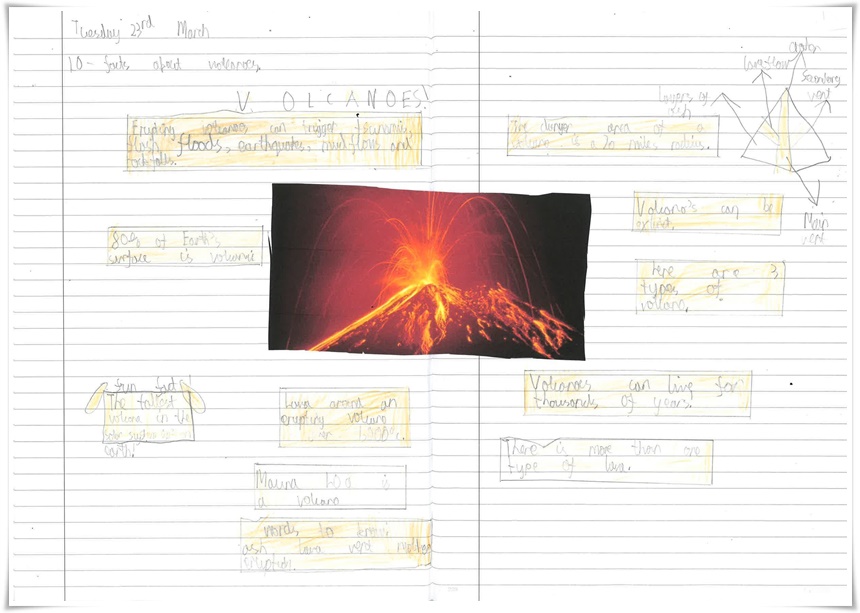 Tuesday 23rd March
LO - facts about volcanoes.
V. OLCANOES!
Erupting volcanoes can trigger tsunamis,
flash floods, earthquakes, mud flows and
rockfalls.
80% of Earth's
surface is volcanic
fun fact!
The tallest
volcano in the
solar system isn't on
earth.
Lava around an
erupting volcano
1300°c.
Mauna Loa is
a volcano
words to know:
ash lava vent
eruption.
The danger area of a
volcano is a 20 miles radius.
lava flow
Secondary
vent
Layers of
ash
Main
vent
Volcano's can be
extinct.
There are 3
types of
volcano.
Volcanoes can live for
thousands of years.
There is more than one
type of lava.